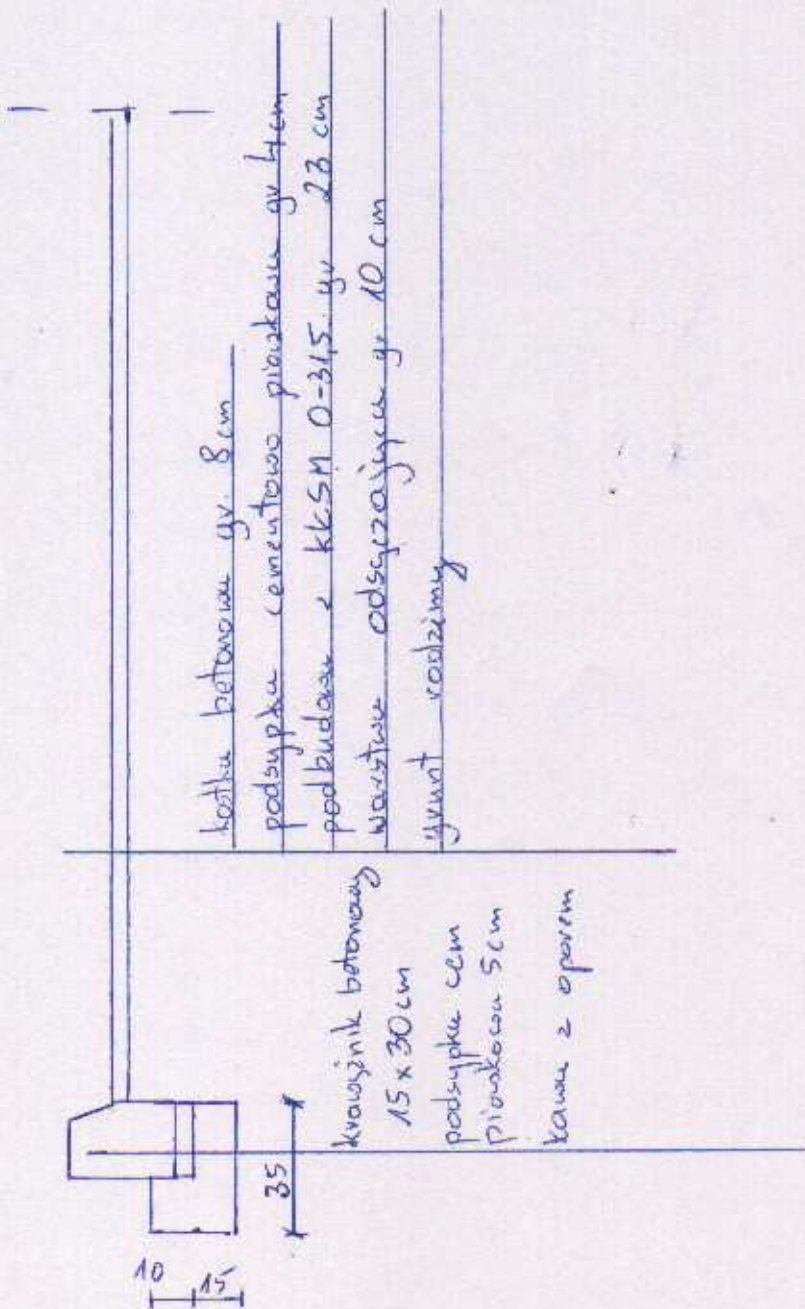 kostka betonowa gr. 8 cm
podsypka cementowo piaskowa gr 4 cm
podbudowa z kkSM 0-31,5 gr 23 cm
warstwa odsączająca gr 10 cm
grunt rodzimy
krawężnik betonowy
15 x 30 cm
podsypka cem
piaskowa 5 cm
ława z oporem
35
10
15